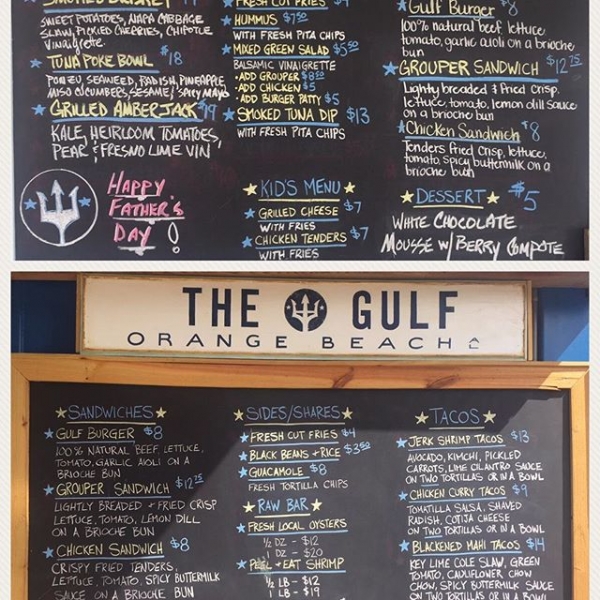 SMOKED BRISKET
SWEET POTATOES, NAPA CABBAGE
SLAW, PICKLED CHERRIES, CHIPOTLE
Vinaigrette
TUNA POKE BOWL $18
PONZU SEAWEED, RADISH, PINEAPPLE
MISO CUCUMBERS, SESAME, SPICY MAYO
GRILLED AMBERJACK $19
KALE, HEIRLOOM TOMATOES,
PEAR & FRESNO LIME VIN
HAPPY
FATHER'S
DAY!
FRESH CUT FRIES $4
HUMMUS $7.50
WITH FRESH PITA CHIPS
MIXED GREEN SALAD $5.50
BALSAMIC VINAIGRETTE
• ADD GROUPER $8.50
• ADD CHICKEN $5
• ADD BURGER PATTY $5
SMOKED TUNA DIP $13
WITH FRESH PITA CHIPS
KID'S MENU
GRILLED CHEESE $7
WITH FRIES
CHICKEN TENDERS $7
WITH FRIES
Gulf Burger $8
100% natural beef, lettuce
tomato, garlic aioli on a brioche
bun
GROUPER SANDWICH $12.75
Lightly breaded & Fried Crisp,
lettuce, tomato, lemon dill sauce
on a brioche bun
Chicken Sandwich $8
Tenders fried Crisp, lettuce,
tomato, spicy buttermilk on a
brioche bun
DESSERT $5
WHITE CHOCOLATE
MOUSSE W/ BERRY COMPOTE
THE GULF
ORANGE BEACH
SANDWICHES
GULF BURGER $8
100% NATURAL BEEF, LETTUCE,
TOMATO, GARLIC AIOLI ON A
BRIOCHE BUN
GROUPER SANDWICH $12.75
LIGHTLY BREADED & FRIED CRISP
LETTUCE, TOMATO, LEMON DILL
ON A BRIOCHE BUN
CHICKEN SANDWICH $8
CRISPY FRIED TENDERS,
LETTUCE, TOMATO, SPICY BUTTERMILK
SAUCE ON A BRIOCHE BUN
SIDES/SHARES
FRESH CUT FRIES $4
BLACK BEANS & RICE $3.50
GUACAMOLE $8
FRESH TORTILLA CHIPS
RAW BAR
FRESH LOCAL OYSTERS
1/2 DZ - $12
1 DZ - $20
PEEL & EAT SHRIMP
1/2 LB - $12
1 LB - $19
TACOS
JERK SHRIMP TACOS $13
AVOCADO, KIMCHI, PICKLED
CARROTS, LIME CILANTRO SAUCE
ON TWO TORTILLAS OR IN A BOWL
CHICKEN CURRY TACOS $9
TOMATILLA SALSA, SHAVED
RADISH, COTIJA CHEESE
ON TWO TORTILLAS OR IN A BOWL
BLACKENED MAHI TACOS $14
KEY LIME COLE SLAW, GREEN
TOMATO, CAULIFLOWER CHOW
CHOW, SPICY BUTTERMILK SAUCE
ON TWO TORTILLAS OR IN A BOWL